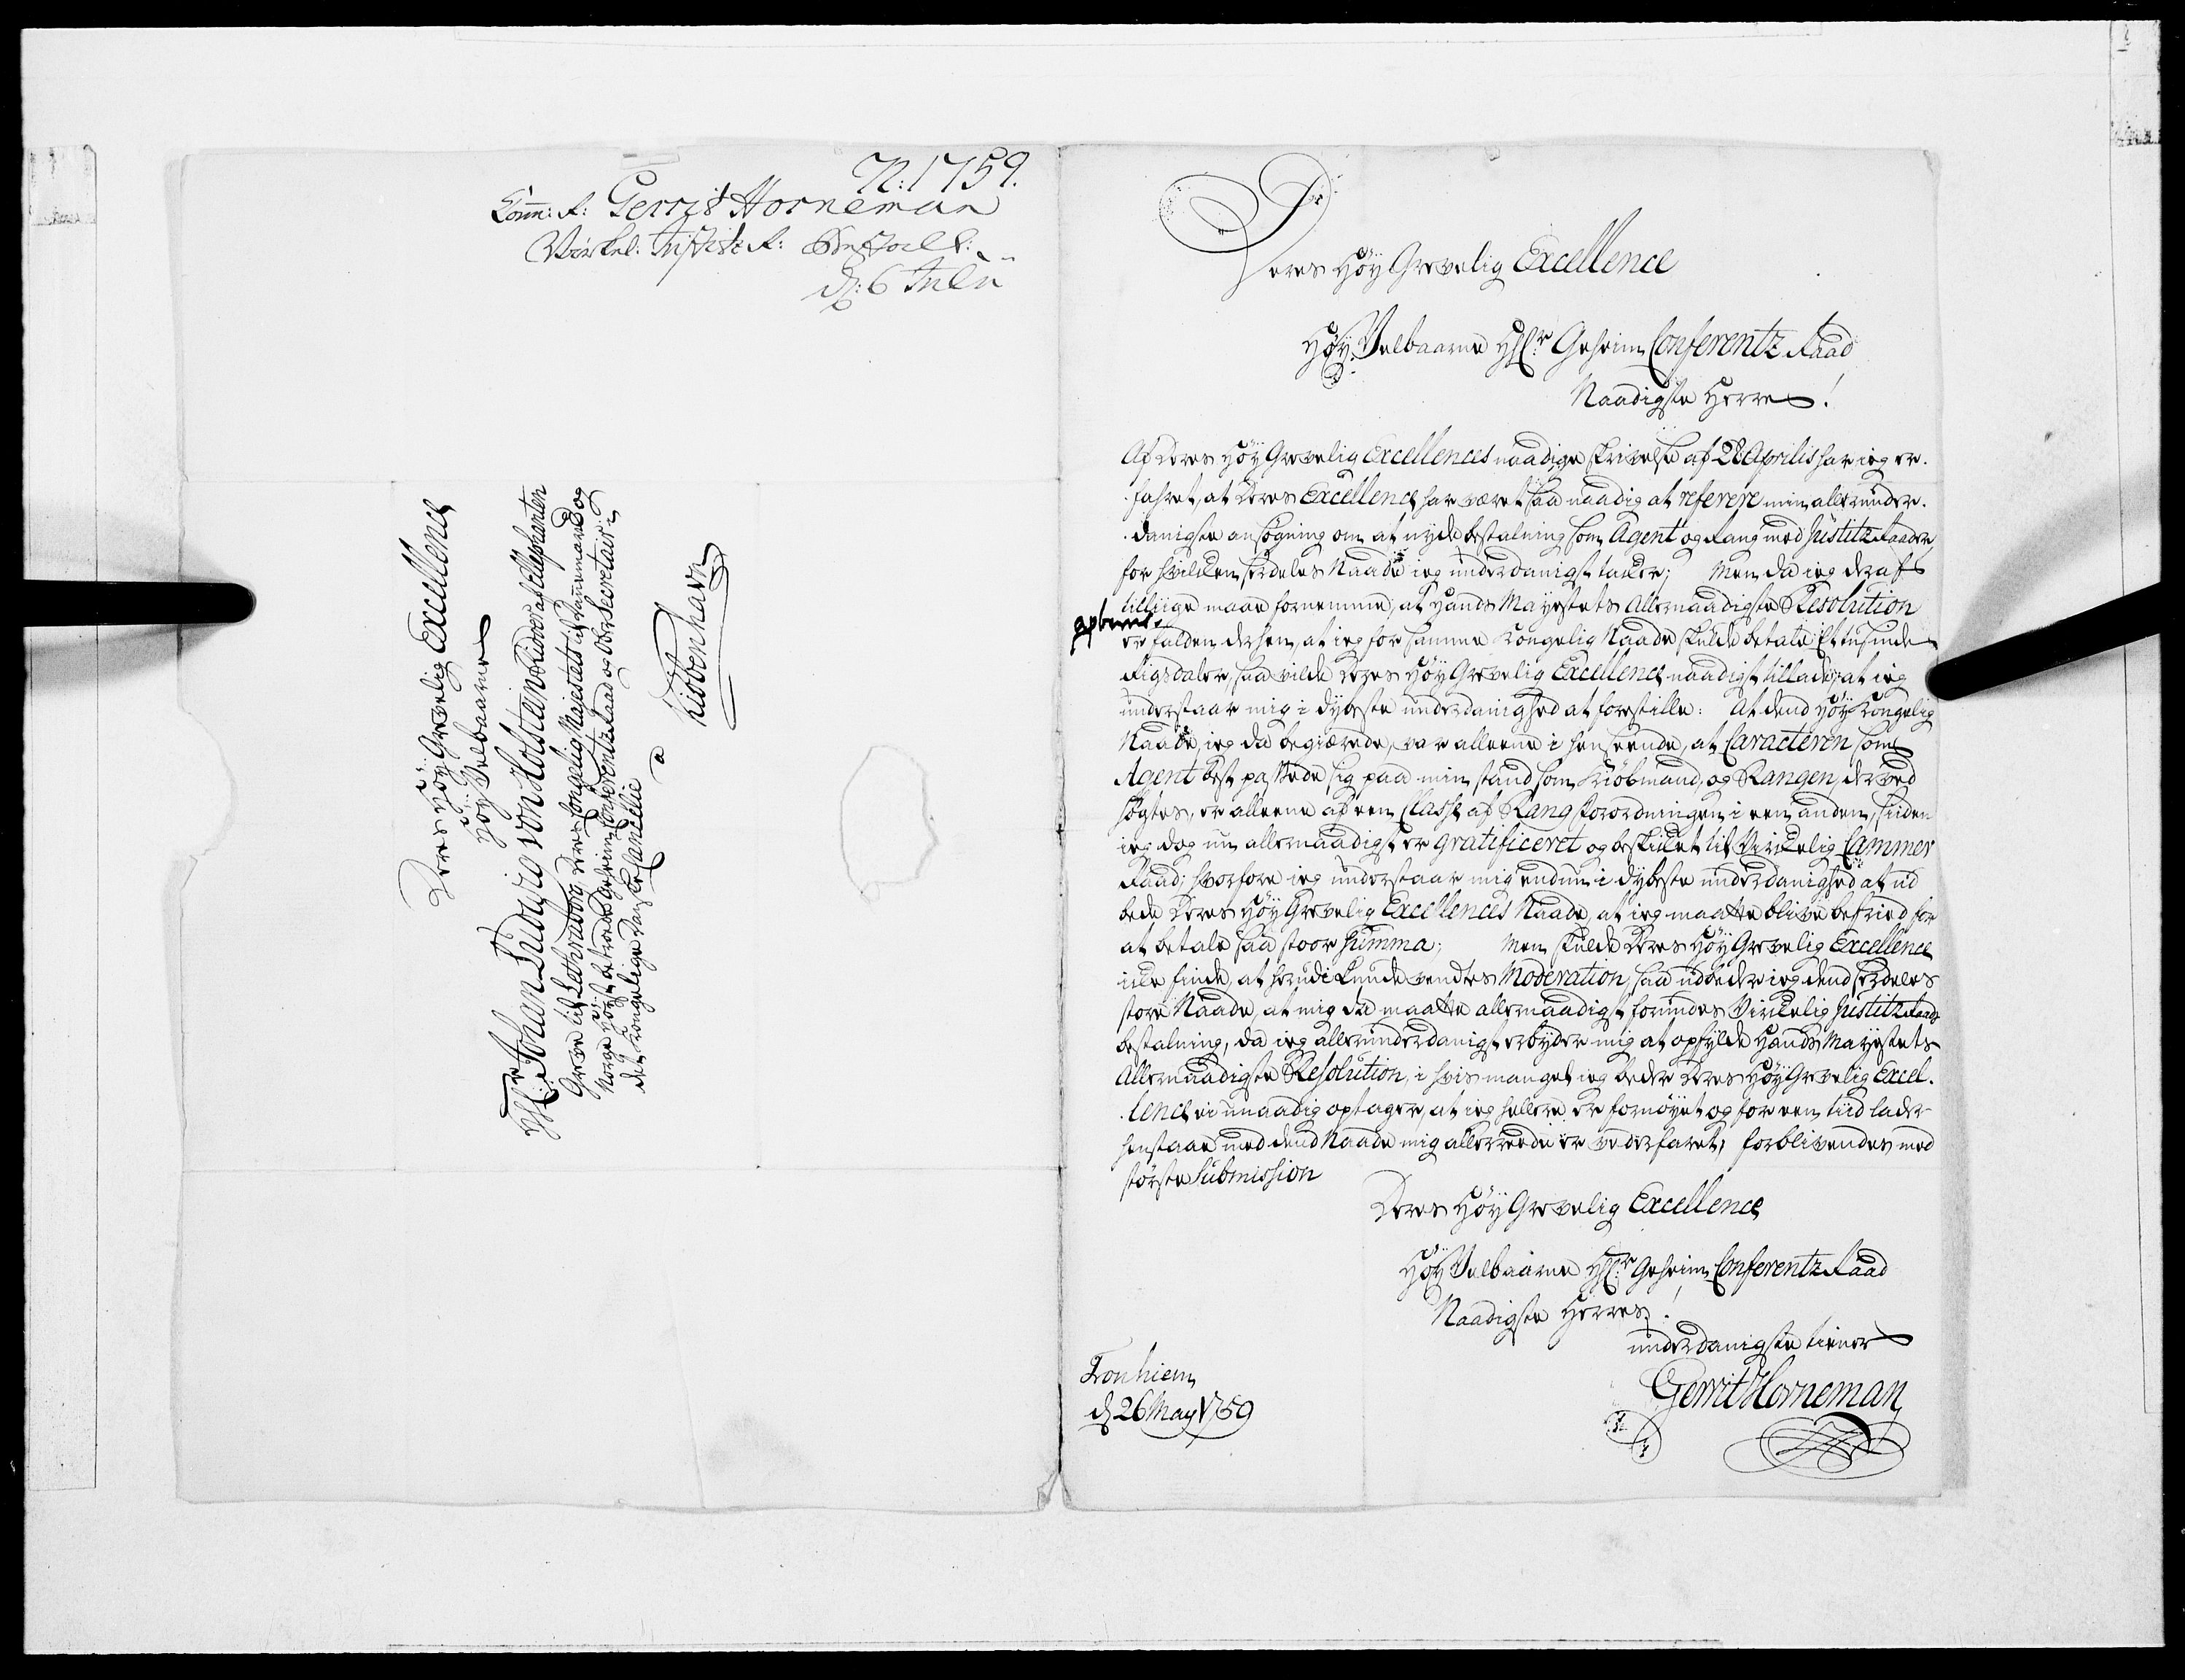 N: 1759.
Comm: R: Gerrit Horneman
Virkel: Justitz R: Bestall:
d: 6 Julii
Deres Høy Grevelig Excellence
Høy Velbaarne
Hr: Johan Ludvig von Holstein Ridder af Ellephanten
Greve til Lethraborg Deres Kongelig Majestets til Dannemark og
Norge Høyst betroede Geheim Conferentz Raad og Ober Secretair i
det Kongelige Danske Cancellie
a
Kiøbenhavn
Deres Høy Grevelig Excellence
Høy Velbaarne Hr Geheim Conferentz Raad
Naadigste Herre!
Af Deres Høy Grevelig Excellences naadige skrivelse af 28 Aprilis har ieg er-
fahret, at Deres Excellence har været saa naadig at referere min allerunder-
danigste ansøgning om at nyde bestalning som Agent og Rang med Justitz Raader,
for hvilken særdeles Naade ieg underdanigst takker; Men da ieg deraf
tilliige maae fornemme, at Hands Mayestets Allernaadigste Resolution
er falden derhen, at ieg for samme Kongelig Naade skulde betale Et tusinde
Rigsdaler, saa vilde Deres Høy Grevelig Excellence naadigst tillade, at ieg
understaar mig i dybeste underdanighed at forestille: At dend høy Kongelig
Naade, ieg da begiærede, var alleene i henseende, at Caracteren som
Agent best passede sig paa min stand som Kiøbmand, og Rangen, derved
søgtes, er alleene af een Classe af Rang Forordningen i een anden, siiden
ieg dog nu allernaadigst er gratificeret og beskicket til Virkelig Cammer
Raad; hvorfore ieg understaar mig endnu i dybeste underdanighed at ud
bede Deres Høy Grevelig Excellences Naade, at ieg maatte blive befried for
at betale saa stoor Summa; Men skulde Deres Høy Grevelig Excellence
icke finde, at herudi kunde ventes Moderation, saa udbeder ieg dend særdeles
store Naade, at mig da maatte allernaadigst forundes Virkelig Justitz Raads
bestalning, da ieg allerunderdanigst erbyder mig at opfylde Hands Mayestets
Allernaadigste Resolution, i hvis mangel ieg beder Deres Høy Grevelig Excel-
lence ei unaadig optager, at ieg hellere er fornøyet og for een tiid lader
henstaae med dend Naade mig allerreede er vederfaret, forblivendes med
største Submission
Deres Høy Grevelig Excellence
Høy Velbaarne Hr Geheim Conferentz Raad
Naadigste Herres!
underdanigste tiener
Gerrit Horneman
Tronhiem
d 26 May 1759